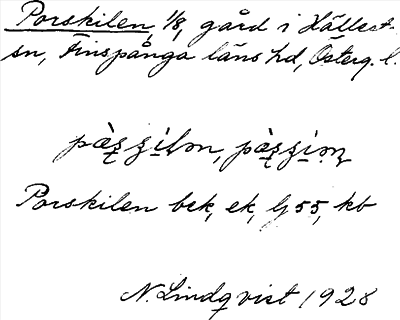 Porskilen, 1/8, gård i Hällest-
sn, Finspånga läns hd, Österg. l.
Porskilen bek, ek, lj 55, kb
N. Lindqvist 1928